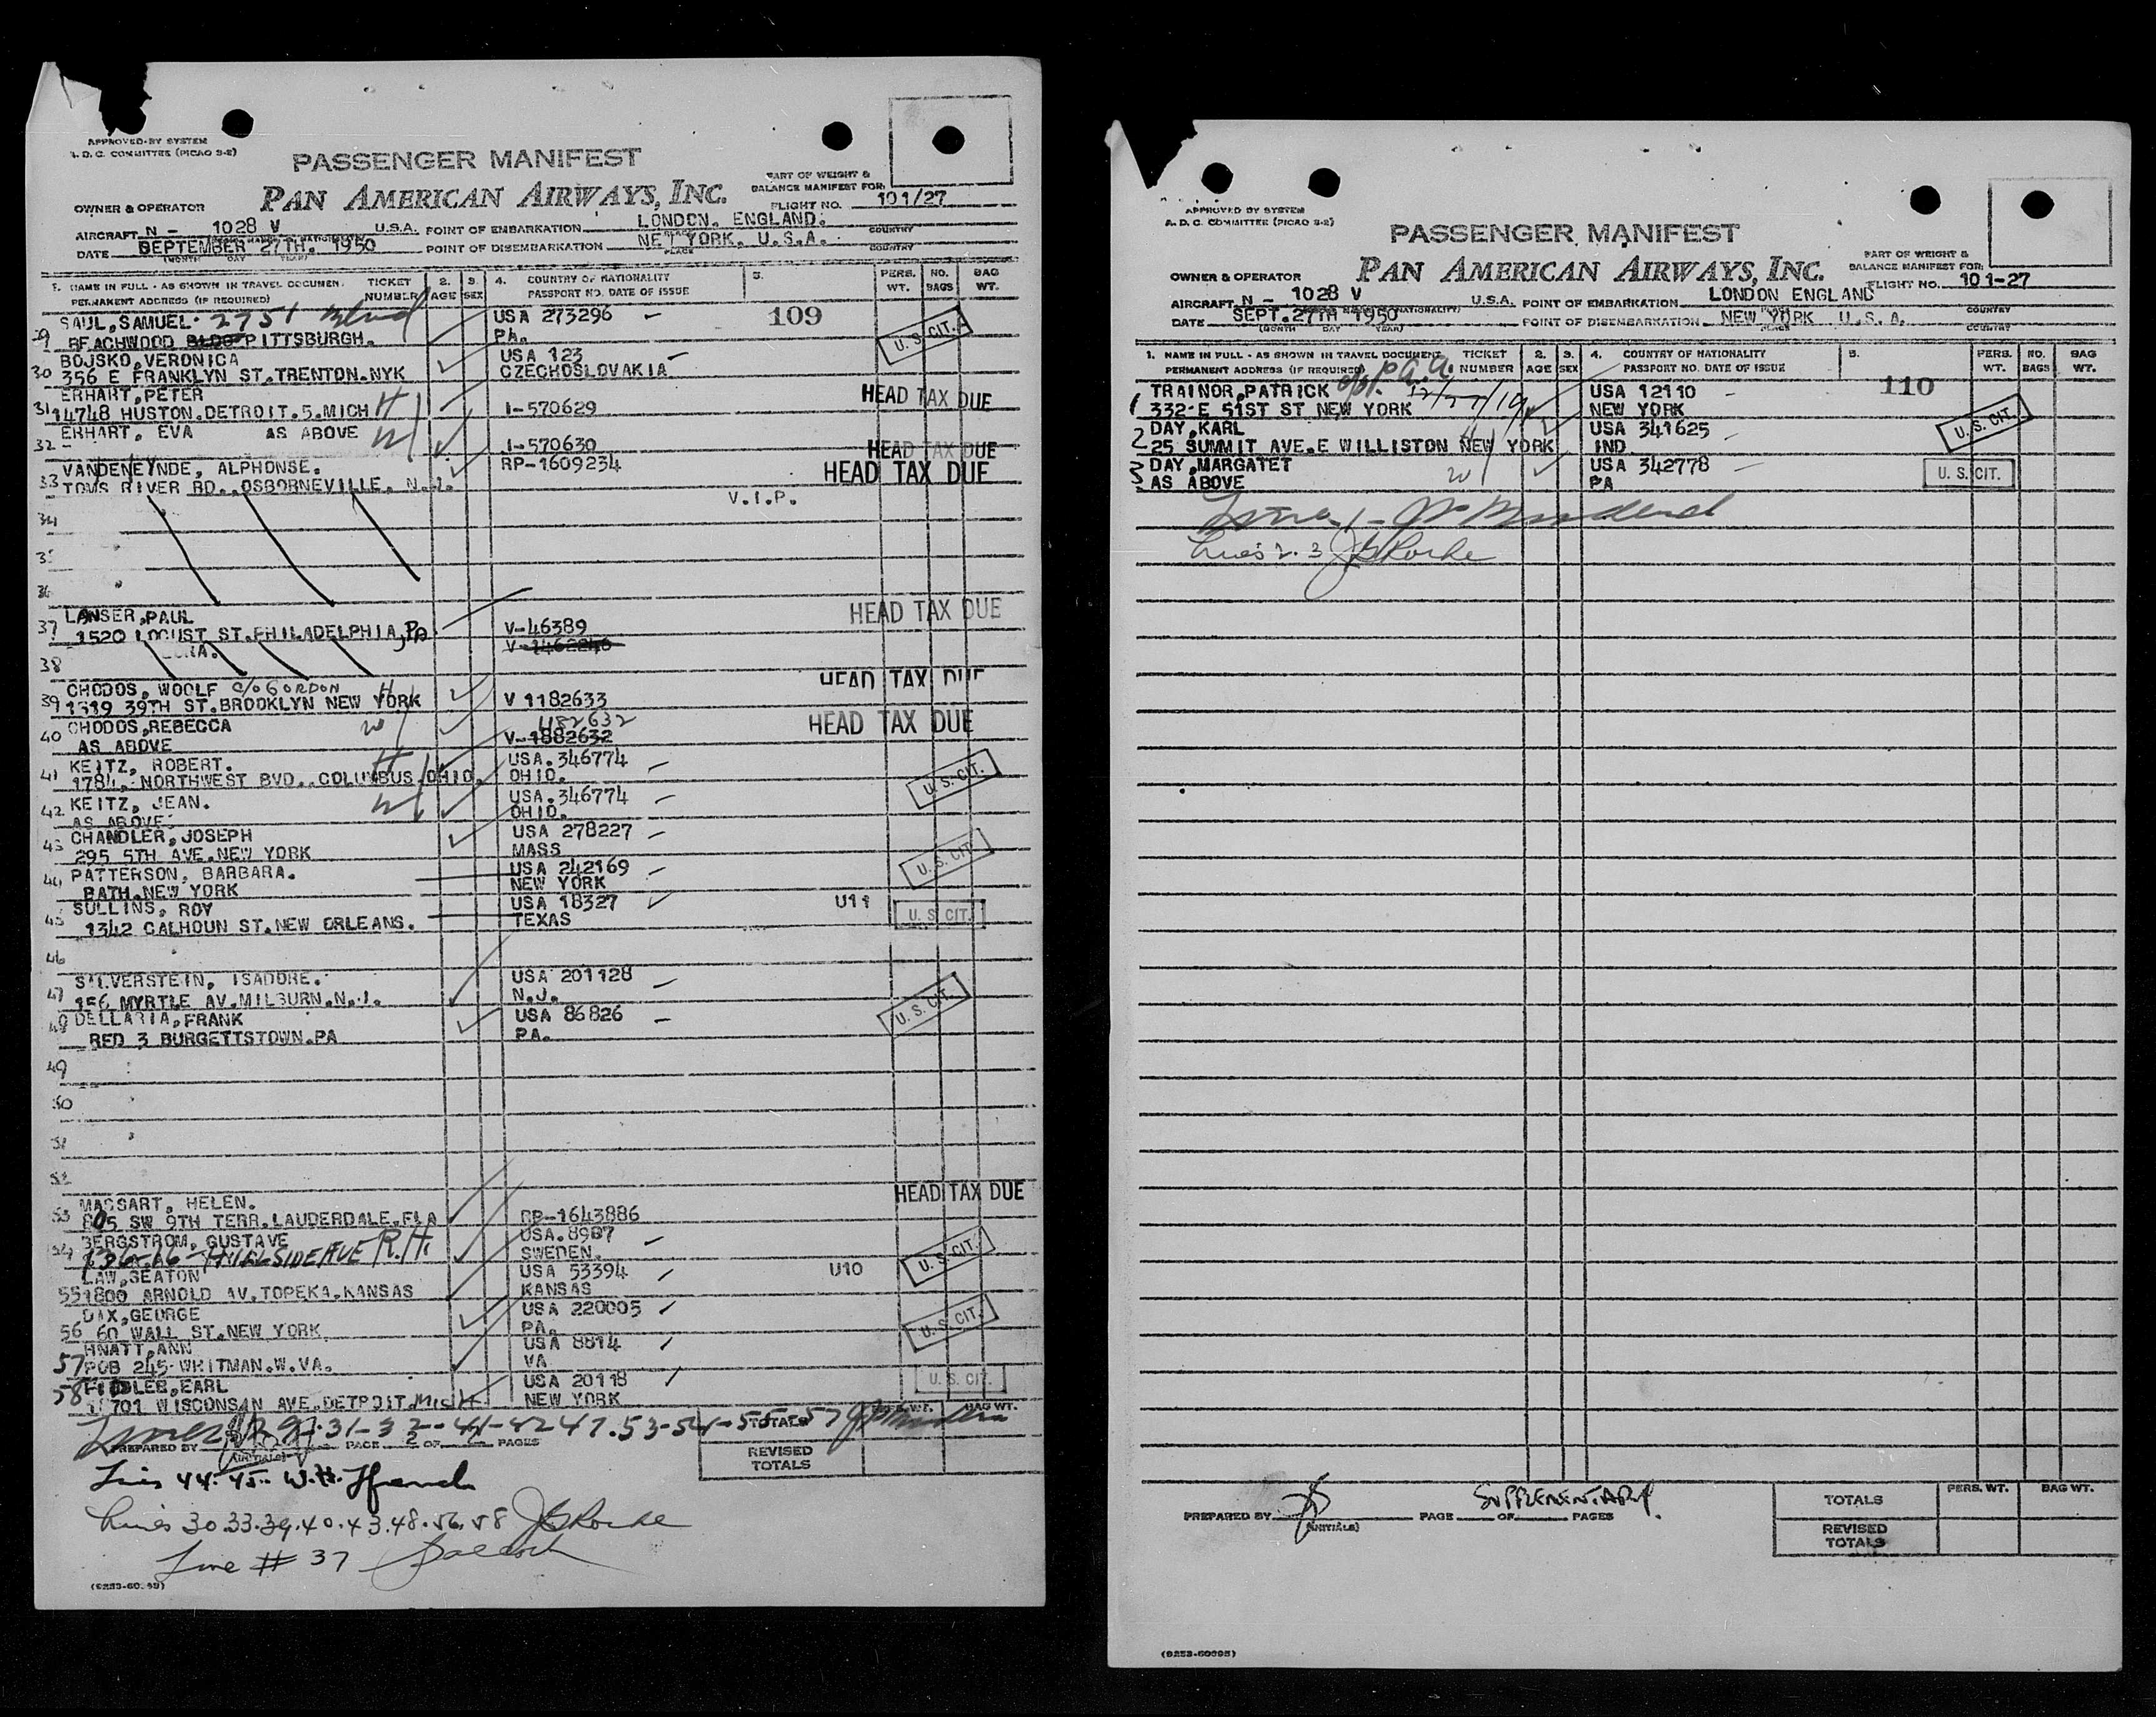 APPROVED BY SYSTEM
A. D. C. COMMITTEE (PICAO S-2)
PASSENGER MANIFEST
PAN AMERICAN AIRWAYS, INC.
PART OF WEIGHT &
BALANCE MANIFEST FOR:
OWNER & OPERATOR
FLIGHT NO. 101/27
AIRCRAFT N - 1028 V U.S.A. POINT OF EMBARKATION LONDON. ENGLAND. COUNTRY
DATE SEPTEMBER 27TH. 1950 POINT OF DISEMBARKATION NEW YORK. U.S.A. COUNTRY
(MONTH DAY YEAR) PLACE
1. NAME IN FULL - AS SHOWN IN TRAVEL DOCUMEN. TICKET 2. 3. 4. COUNTRY OF NATIONALITY 5. PERS. NO. BAG
PERMANENT ADDRESS (IF REQUIRED) NUMBER AGE SEX PASSPORT NO. DATE OF ISSUE WT. BAGS WT.
SAUL, SAMUEL. 2751 Blvd USA 273296 109
29 BEACHWOOD BLDG PITTSBURGH. PA. U. S. CIT.
BOJSKO, VERONICA USA 123
30 356 E FRANKLYN ST. TRENTON. NYK CZECHOSLOVAKIA
ERHART, PETER HEAD TAX DUE
31 14748 HUSTON. DETROIT. 5. MICH H I-570629
ERHART, EVA AS ABOVE W
32 I-570630 HEAD TAX DUE
VANDENEYNDE, ALPHONSE. RP-1609234 HEAD TAX DUE
33 TOMS RIVER RD., OSBORNEVILLE. N.J.
V.I.P.
34
35
36
LANSER, PAUL HEAD TAX DUE
37 1520 LOCUST ST. PHILADELPHIA, PA V-46389
V-1462246
38
CHODOS, WOOLF c/o GORDON H HEAD TAX DUE
39 1319 39TH ST. BROOKLYN NEW YORK V 1182633
CHODOS, REBECCA W 1182632 HEAD TAX DUE
40 AS ABOVE V-1882632
KEITZ, ROBERT. H USA. 346774
41 1784, NORTHWEST BVD., COLUMBUS, OHIO. OHIO. U. S. CIT.
42 KEITZ, JEAN. W USA. 346774
AS ABOVE. OHIO.
43 CHANDLER, JOSEPH USA 278227
295 5TH AVE. NEW YORK MASS
44 PATTERSON, BARBARA. USA 242169 U. S. CIT.
BATH. NEW YORK NEW YORK
SULLINS, ROY USA 18327 U11
45 1342 CALHOUN ST. NEW ORLEANS. TEXAS U. S. CIT.
46
SILVERSTEIN, ISADORE. USA 201128
47 156 MYRTLE AV. MILBURN. N.J. N.J.
48 DELLARIA, FRANK USA 86826 U. S. CIT.
RED 3 BURGETTSTOWN. PA PA.
49
50
51
52
MASSART, HELEN. HEAD TAX DUE
53 805 SW 9TH TERR. LAUDERDALE. FLA RP-1643886
BERGSTROM, GUSTAVE USA. 8987
54 136-16 HILLSIDE AVE R.H. SWEDEN. U. S. CIT.
LAW, SEATON USA 53394 U10
55 1800 ARNOLD AV. TOPEKA. KANSAS KANSAS
DIX, GEORGE USA 220005
56 60 WALL ST. NEW YORK PA. U. S. CIT.
HNATT, ANN USA 8814
57 POB 245 WHITMAN. W. VA. VA
58 FIDLER, EARL USA 20118 U. S. CIT.
701 WISCONSAN AVE. DETROIT. MICH NEW YORK
Lines 29-31-32-41-42 47. 53-54-55-57 TOTALS PERS. WT. BAG WT.
PREPARED BY (INITIALS) PAGE 2 OF 2 PAGES
REVISED
TOTALS
Lines 44-45- W.H.
Lines 30.33.39.40.43.48.56.58 J G Rorke
Line # 37
(9253-60.99)
APPROVED BY SYSTEM
A. D. C. COMMITTEE (PICAO S-2)
PASSENGER MANIFEST
PAN AMERICAN AIRWAYS, INC.
PART OF WEIGHT &
BALANCE MANIFEST FOR:
OWNER & OPERATOR
FLIGHT NO. 101-27
AIRCRAFT N - 1028 V U.S.A. POINT OF EMBARKATION LONDON ENGLAND COUNTRY
DATE SEPT. 27TH 1950 POINT OF DISEMBARKATION NEW YORK U.S.A. COUNTRY
1. NAME IN FULL - AS SHOWN IN TRAVEL DOCUMENT TICKET 2. 3. 4. COUNTRY OF NATIONALITY 5. PERS. NO. BAG
PERMANENT ADDRESS (IF REQUIRED) NUMBER AGE SEX PASSPORT NO. DATE OF ISSUE WT. BAGS WT.
TRAINOR, PATRICK P.A.A. USA 12110 110
1 332 E 51ST ST NEW YORK NEW YORK
2 DAY, KARL H USA 341625 U. S. CIT.
25 SUMMIT AVE. E WILLISTON NEW YORK IND
3 DAY, MARGATET W USA 342778
AS ABOVE PA U. S. CIT.
Line 1 -
Lines 2. 3 J G Rorke
PREPARED BY (INITIALS) PAGE OF PAGES
SUPPLEMENTARY.
PERS. WT. BAG WT.
TOTALS
REVISED
TOTALS
(9253-60095)